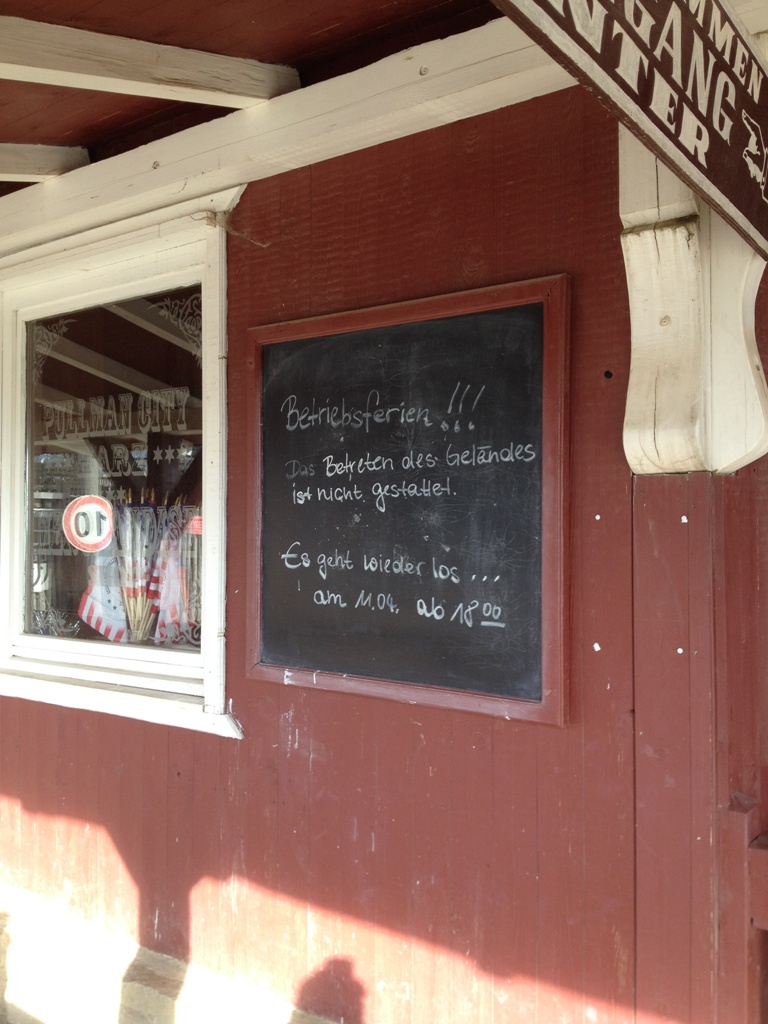 MMEN
GANG
NTER
PULLMAN CITY
10
Betriebsferien !!!
Das Betreten des Geländes
ist nicht gestattet.
Es geht wieder los ...
am 11.04. ab 18 00